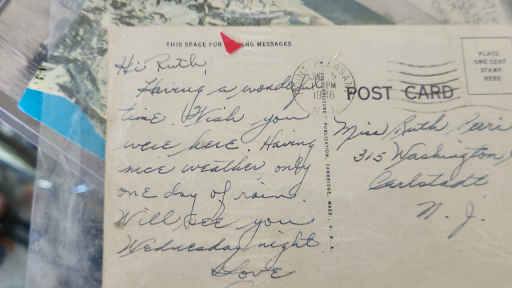 THIS SPACE FOR WRITING MESSAGES
Hi Ruth,
Having a wonderful
time Wish you
were here. Having
nice weather only
one day of rain.
Will see you
Wednesday night
Love
POST CARD
PLACE
ONE CENT
STAMP
HERE
Miss Ruth
315 Washington
Carlstadt
N. J.